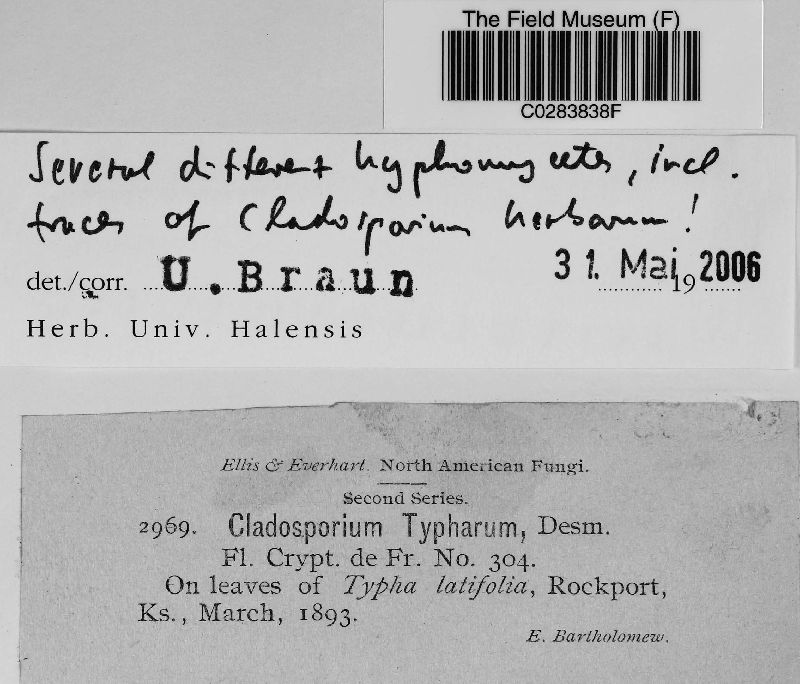 The Field Museum (F)
C0283838F
Several different hyphomycetes, incl.
traces of Cladosporium herbarum!
det./corr. U. Braun 31. Mai 2006 19
Herb. Univ. Halensis
Ellis & Everhart. North American Fungi.
Second Series.
2969. Cladosporium Typharum, Desm.
Fl. Crypt. de Fr. No. 304.
On leaves of Typha latifolia, Rockport,
Ks., March, 1893.
E. Bartholomew.